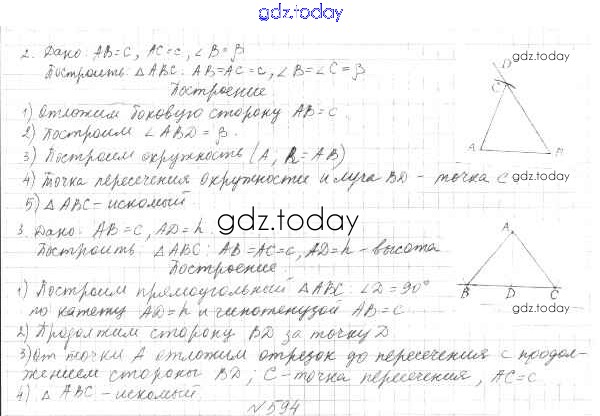 gdz.today
2. Дано: AB=c, AC=c, ∠B=β
Построить: △ABC: AB=AC=c, ∠B=∠C=β
Построение
1) Отложим боковую сторону AB=c.
2) Построим ∠ABD=β.
3) Построим окружность (A, R=AB)
4) Точка пересечения окружности и луча BD - точка C
5) △ABC - искомый
gdz.today
D
C
A
B
gdz.today
gdz.today
3. Дано: AB=c, AD=h.
Построить: △ABC: AB=AC=c, AD=h - высота
Построение
1) Построим прямоугольный △ABD: ∠D=90°
по катету AD=h и гипотенузой AB=c
2) Продолжим сторону BD за точку D
3) От точки A отложим отрезок до пересечения с продол-
жением стороны BD; C - точка пересечения, AC=c.
4) △ABC - искомый.
A
B D C
gdz.today
№594